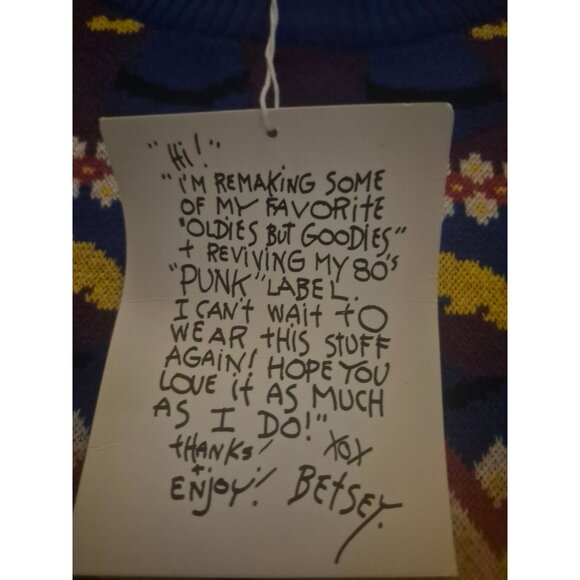 "Hi!"
"I'M REMAKING SOME
OF MY FAVORITE
"OLDIES BUT GOODIES"
+ REVIVING MY 80's
"PUNK" LABEL.
I CAN'T WAIT TO
WEAR THIS STUFF
AGAIN! HOPE YOU
LOVE IT AS MUCH
AS I DO!"
THANKS! XOX
+
ENJOY! BETSEY.